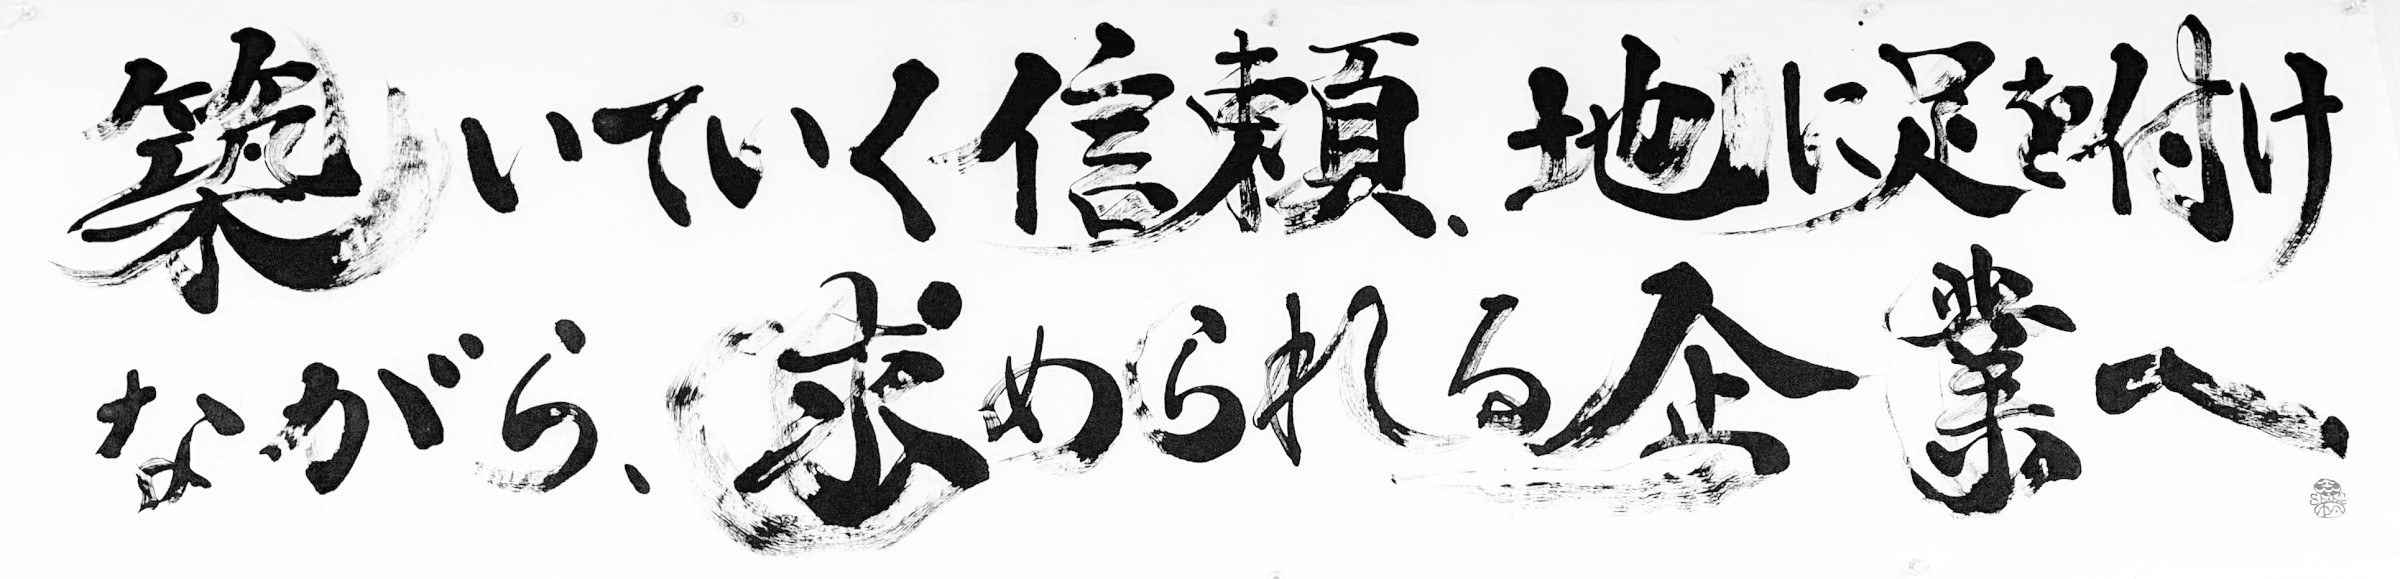 築いていく信頼、地に足を付け
ながら、求められる企業へ